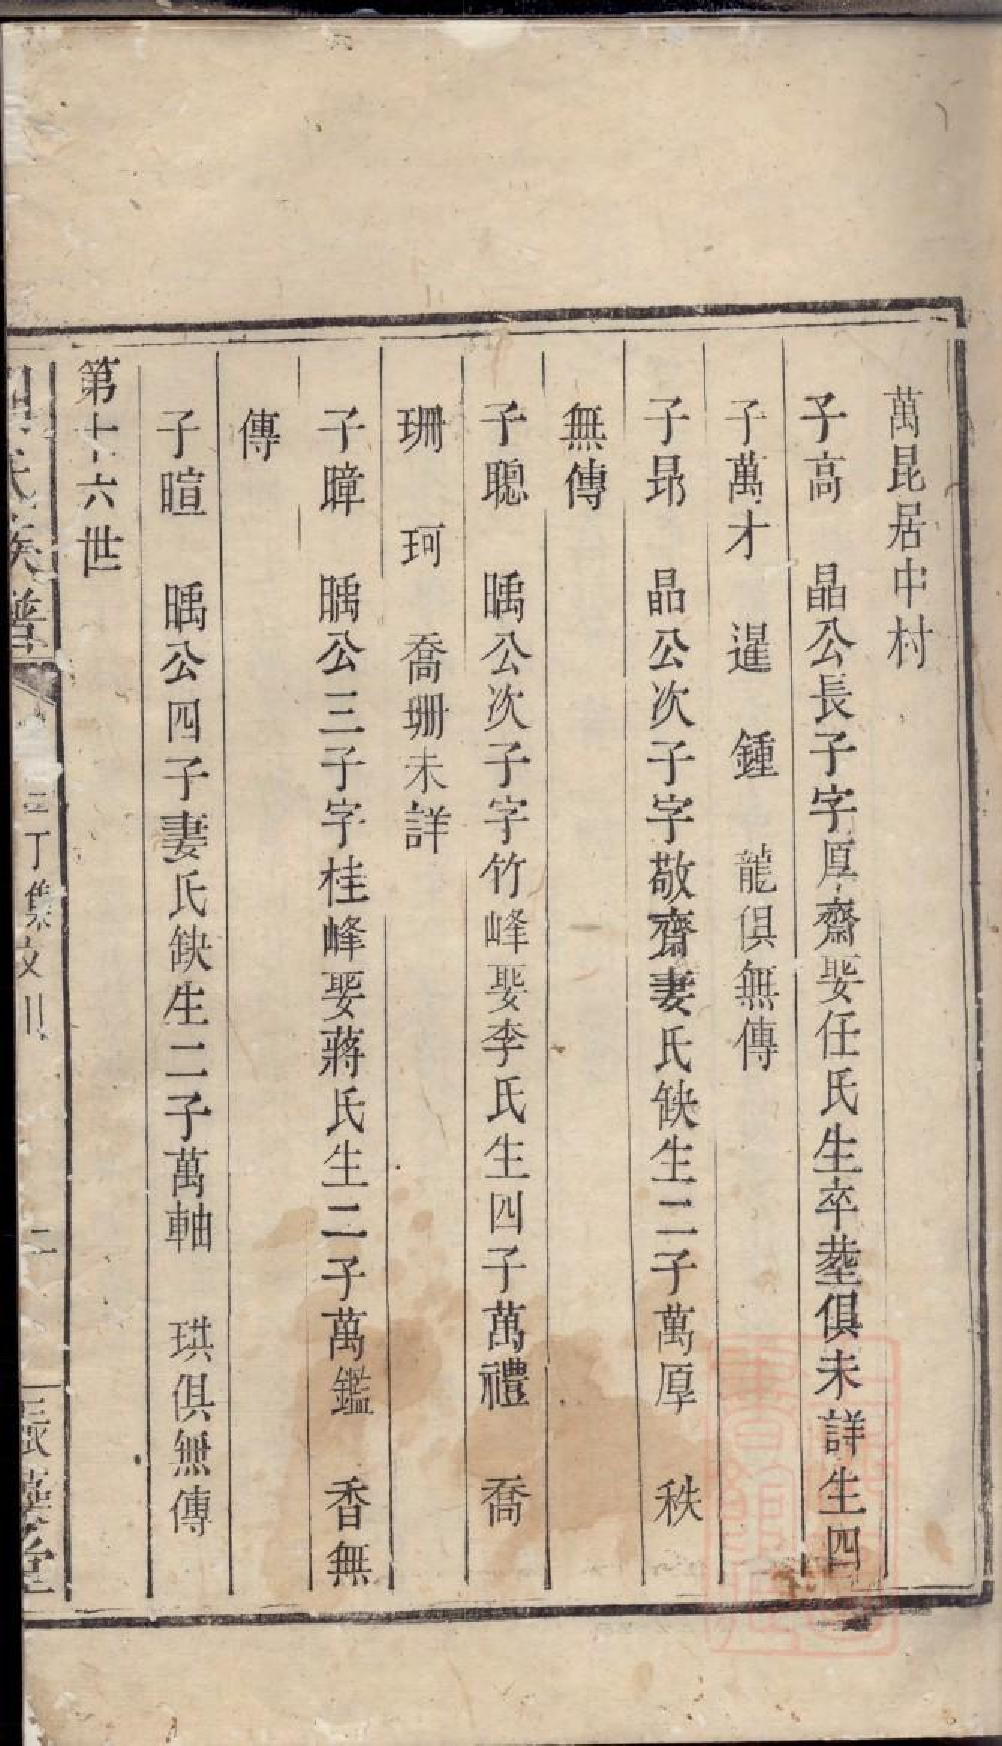 萬昆居中村
子高　晶公長子字厚齋娶任氏生卒塟俱未詳生四
子萬才　暹　鍾　龍俱無傳
子昻　晶公次子字敬齋妻氏缺生二子萬厚　秩
無傳
子聰　㬙公次子字竹峰娶李氏生四子萬禮　喬
珊　珂　喬珊未詳
子暲　㬙公三子字桂峰娶蔣氏生二子萬鑑　香無
傳
子暄　㬙公四子妻氏缺生二子萬軸　珙俱無傳
第十六世
氏族譜
丁集
二
堂